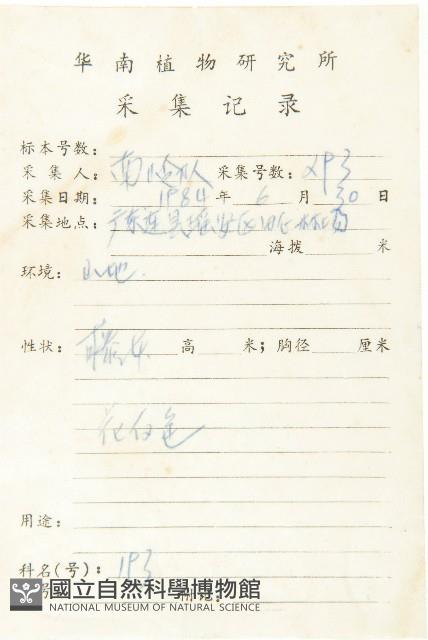 华南植物研究所
采集记录
标本号数：
采集人：南岭队 采集号数：293
采集日期：1984年6月30日
采集地点：广东连县瑶安区田心林场
海拨 米
环境：山地.
性状：藤本 高 米；胸径 厘米
花白色
用途：
科名(号)：193
國立自然科學博物館
NATIONAL MUSEUM OF NATURAL SCIENCE